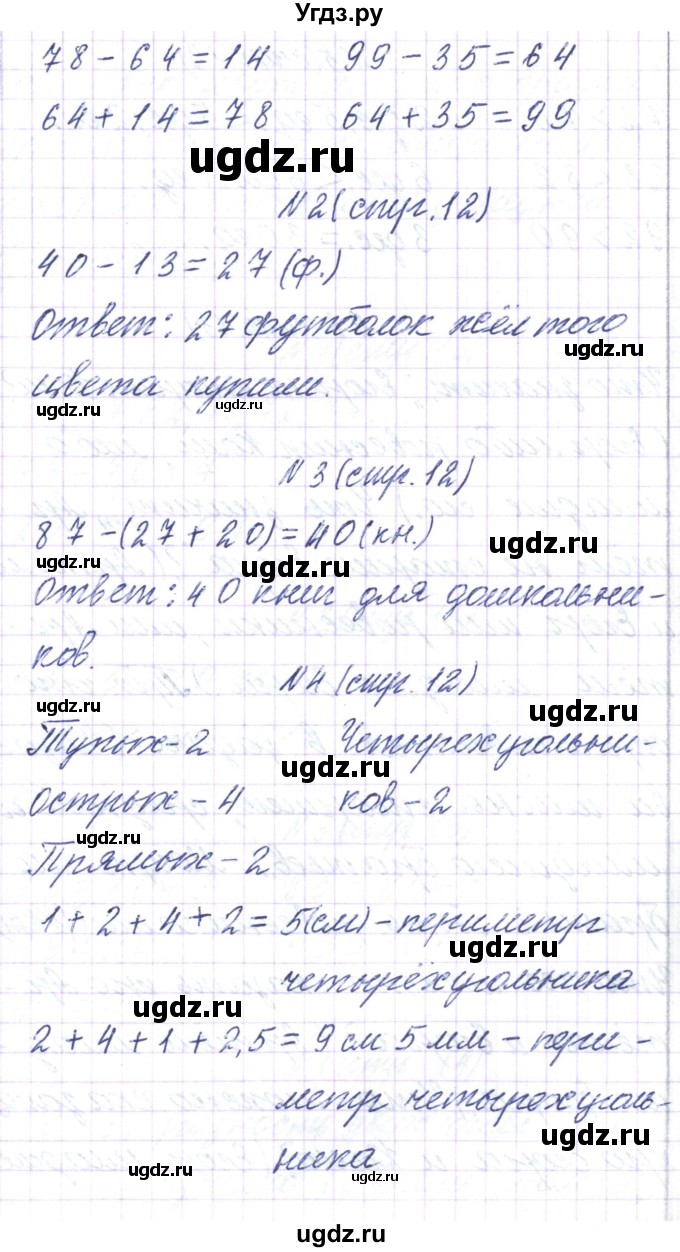 Угдз.ру
78 - 64 = 14    99 - 35 = 64
64 + 14 = 78    64 + 35 = 99
ugdz.ru
N 2 (стр. 12)
40 - 13 = 27 (ф.)
Ответ: 27 футболок жёлтого
ugdz.ru
цвета купили.
ugdz.ru ugdz.ru
N 3 (стр. 12)
87 - (27 + 20) = 40 (кн.)
ugdz.ru
ugdz.ru ugdz.ru
Ответ: 40 книг для дошкольни-
ков.
N 4 (стр. 12)
ugdz.ru ugdz.ru
Тупых - 2    Четырехугольни-
ugdz.ru
острых - 4    ков - 2
ugdz.ru
Прямых - 2
1 + 2 + 4 + 2 = 5(см) - периметр
ugdz.ru
четырёхугольника
ugdz.ru
2 + 4 + 1 + 2,5 = 9 см 5 мм - пери-
метр четырехуголь-
ugdz.ru
ника
ugdz.ru ugdz.ru
ugdz.ru